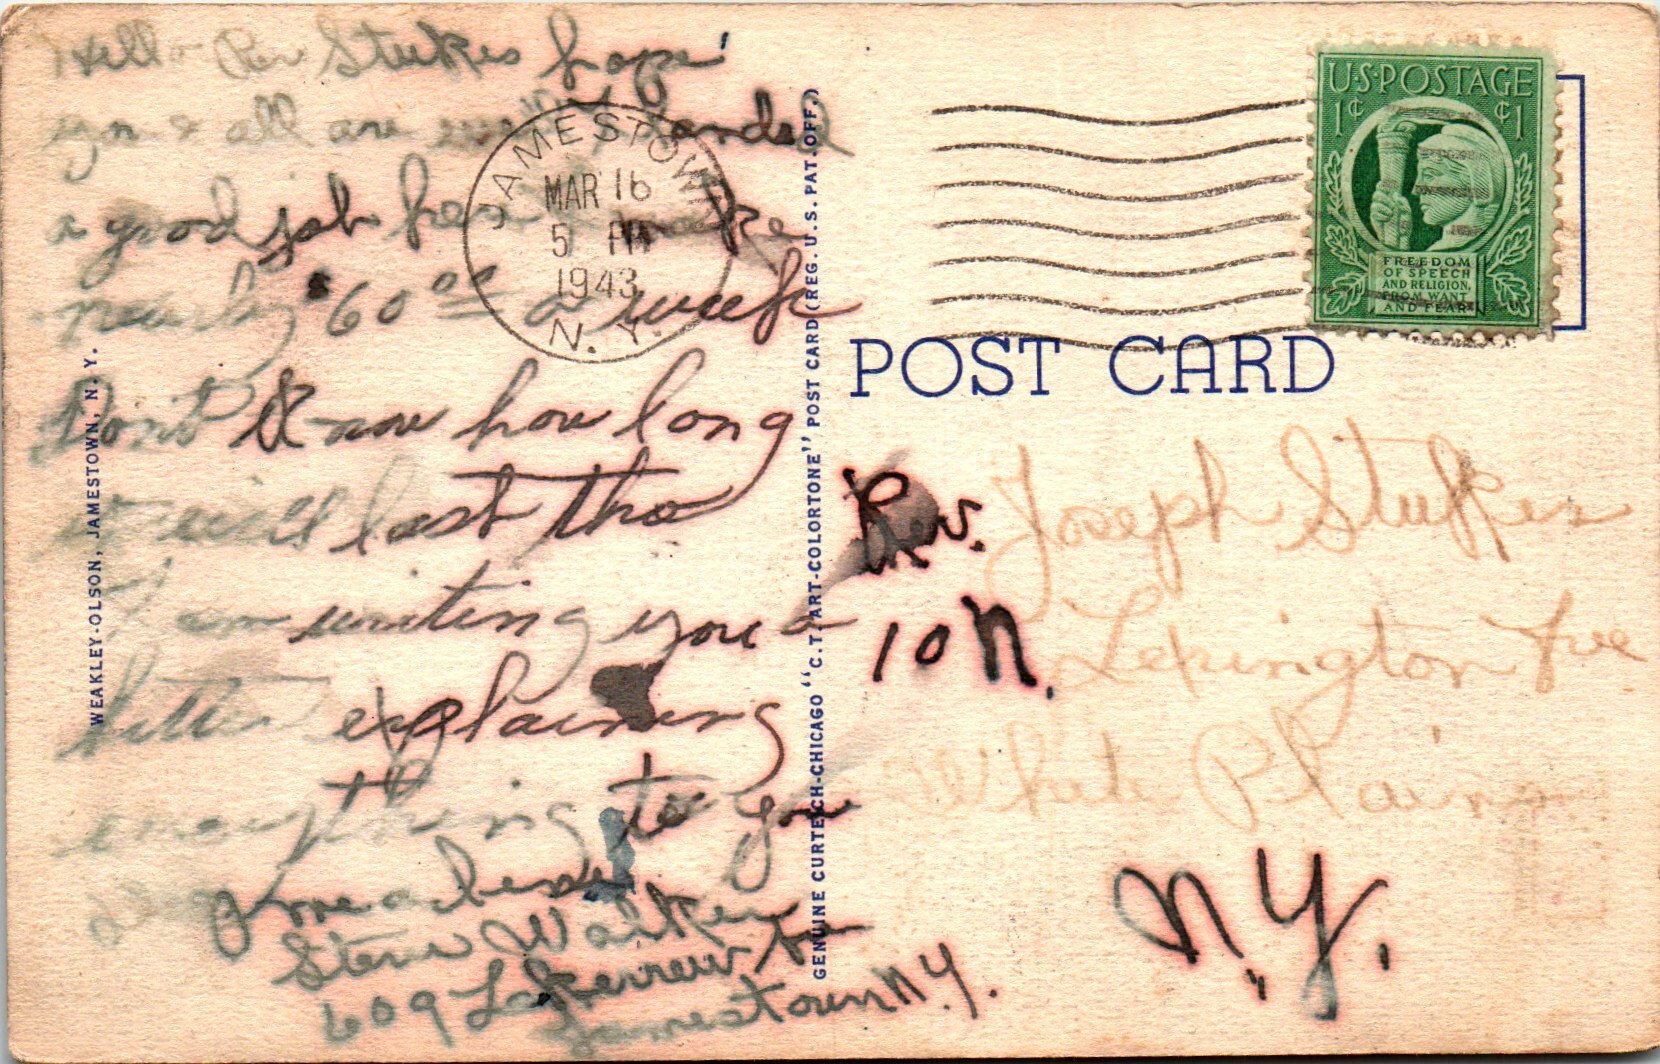 Hello Rev Stukes hope
you & all are well landed
a good job here make
nearly $60.00 a week
Don't Know how long
it will last tho
I am writing you a
letter explaining
everything to you
Steve Walker
609 Lakeview Ave
Jamestown N.Y.
JAMESTOWN
MAR 16
5 PM
1943
N. Y.
WEAKLEY-OLSON, JAMESTOWN, N. Y.
GENUINE CURTEICH-CHICAGO "C. T. ART-COLORTONE" POST CARD (REG. U. S. PAT. OFF.)
U·S·POSTAGE
1¢ ¢1
FREEDOM
OF SPEECH
AND RELIGION,
FROM WANT
AND FEAR
POST CARD
Rev. Joseph Stukes
10 N. Lexington Ave
White Plains
N.Y.